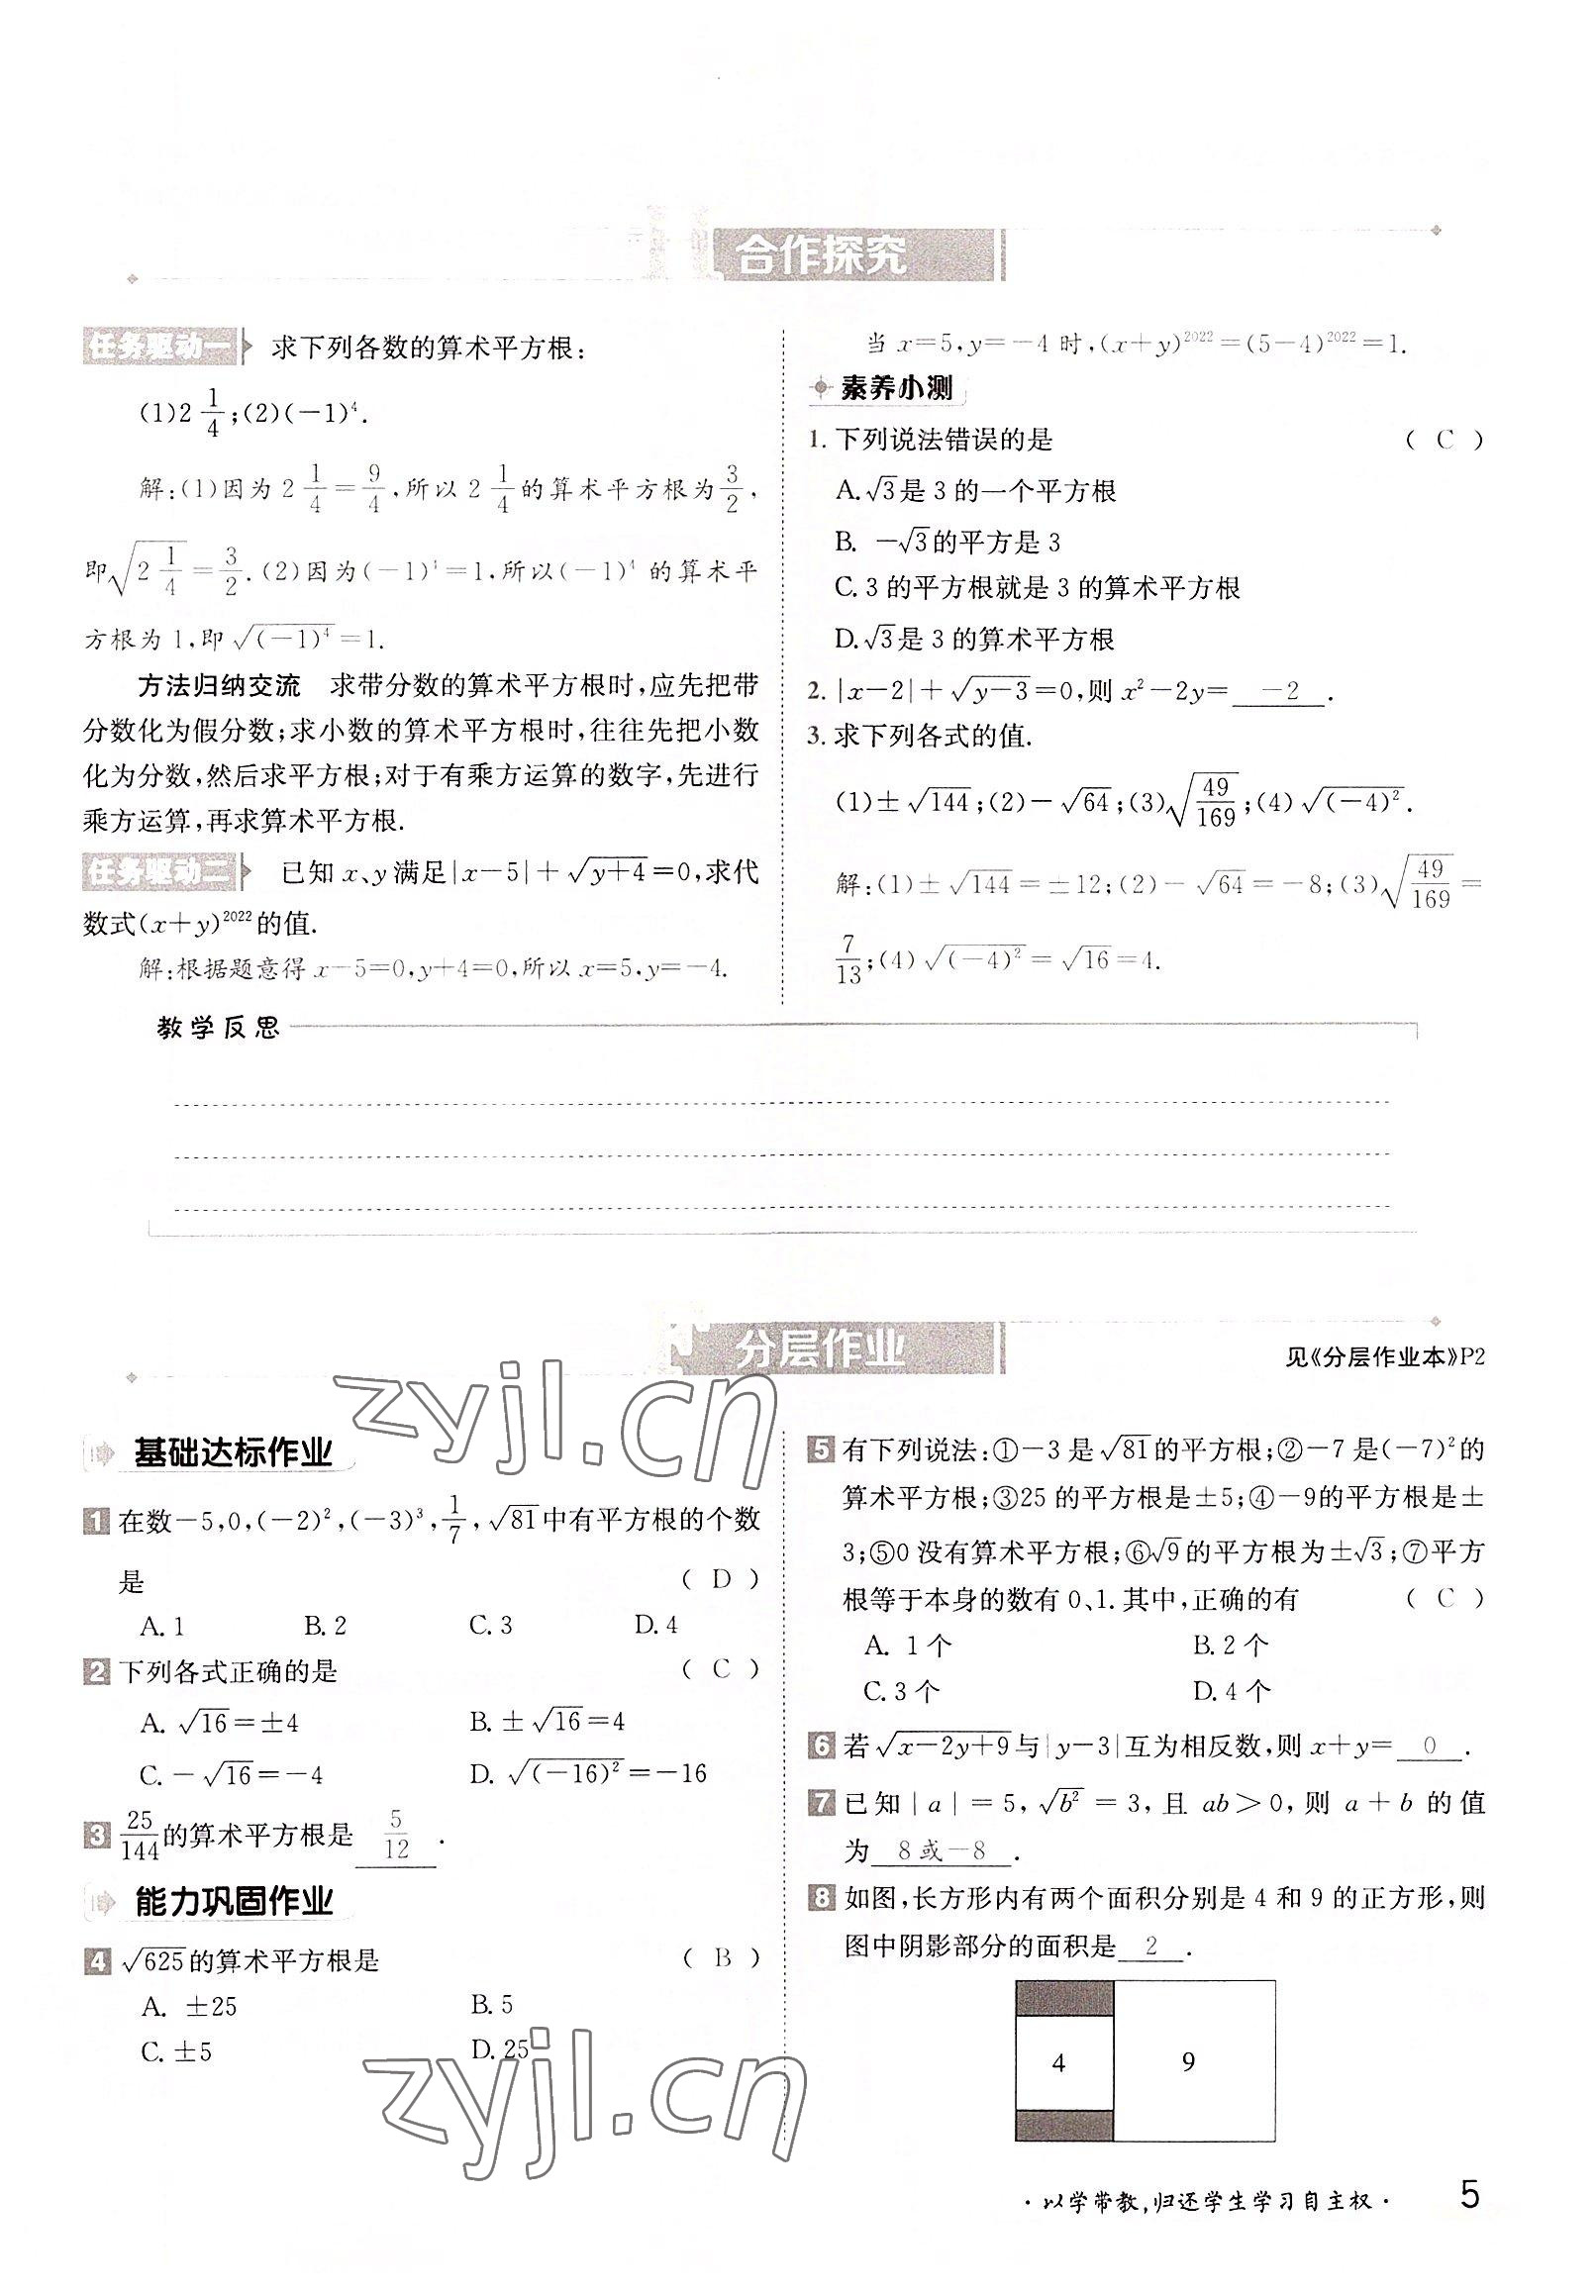 合作探究
任务驱动一 求下列各数的算术平方根:
(1)2 1/4;(2)(-1)⁴.
解:(1)因为2 1/4=9/4,所以2 1/4的算术平方根为3/2,
即√(2 1/4)=3/2.(2)因为(-1)⁴=1,所以(-1)⁴的算术平
方根为1,即√((-1)⁴)=1.
方法归纳交流 求带分数的算术平方根时,应先把带
分数化为假分数;求小数的算术平方根时,往往先把小数
化为分数,然后求平方根;对于有乘方运算的数字,先进行
乘方运算,再求算术平方根.
任务驱动二 已知x、y满足|x-5|+√(y+4)=0,求代
数式(x+y)²⁰²²的值.
解:根据题意得x-5=0,y+4=0,所以x=5,y=-4.
当x=5,y=-4时,(x+y)²⁰²²=(5-4)²⁰²²=1.
素养小测
1.下列说法错误的是 ( C )
A.√3是3的一个平方根
B.-√3的平方是3
C.3的平方根就是3的算术平方根
D.√3是3的算术平方根
2.|x-2|+√(y-3)=0,则x²-2y= -2 .
3.求下列各式的值.
(1)±√144;(2)-√64;(3)√(49/169);(4)√((-4)²).
解:(1)±√144=±12;(2)-√64=-8;(3)√(49/169)=
7/13;(4)√((-4)²)=√16=4.
教学反思
分层作业
见《分层作业本》P2
基础达标作业
1 在数-5,0,(-2)²,(-3)³,1/7,√81中有平方根的个数
是 ( D )
A.1 B.2 C.3 D.4
2 下列各式正确的是 ( C )
A.√16=±4 B.±√16=4
C.-√16=-4 D.√((-16)²)=-16
3 25/144的算术平方根是 5/12 .
能力巩固作业
4 √625的算术平方根是 ( B )
A.±25 B.5
C.±5 D.25
5 有下列说法:①-3是√81的平方根;②-7是(-7)²的
算术平方根;③25的平方根是±5;④-9的平方根是±
3;⑤0没有算术平方根;⑥√9的平方根为±√3;⑦平方
根等于本身的数有0、1.其中,正确的有 ( C )
A.1个 B.2个
C.3个 D.4个
6 若√(x-2y+9)与|y-3|互为相反数,则x+y= 0 .
7 已知|a|=5,√(b²)=3,且ab>0,则a+b的值
为 8或-8 .
8 如图,长方形内有两个面积分别是4和9的正方形,则
图中阴影部分的面积是 2 .
4 9
·以学带教,归还学生学习自主权· 5
zyjl.cn
zyjl.cn